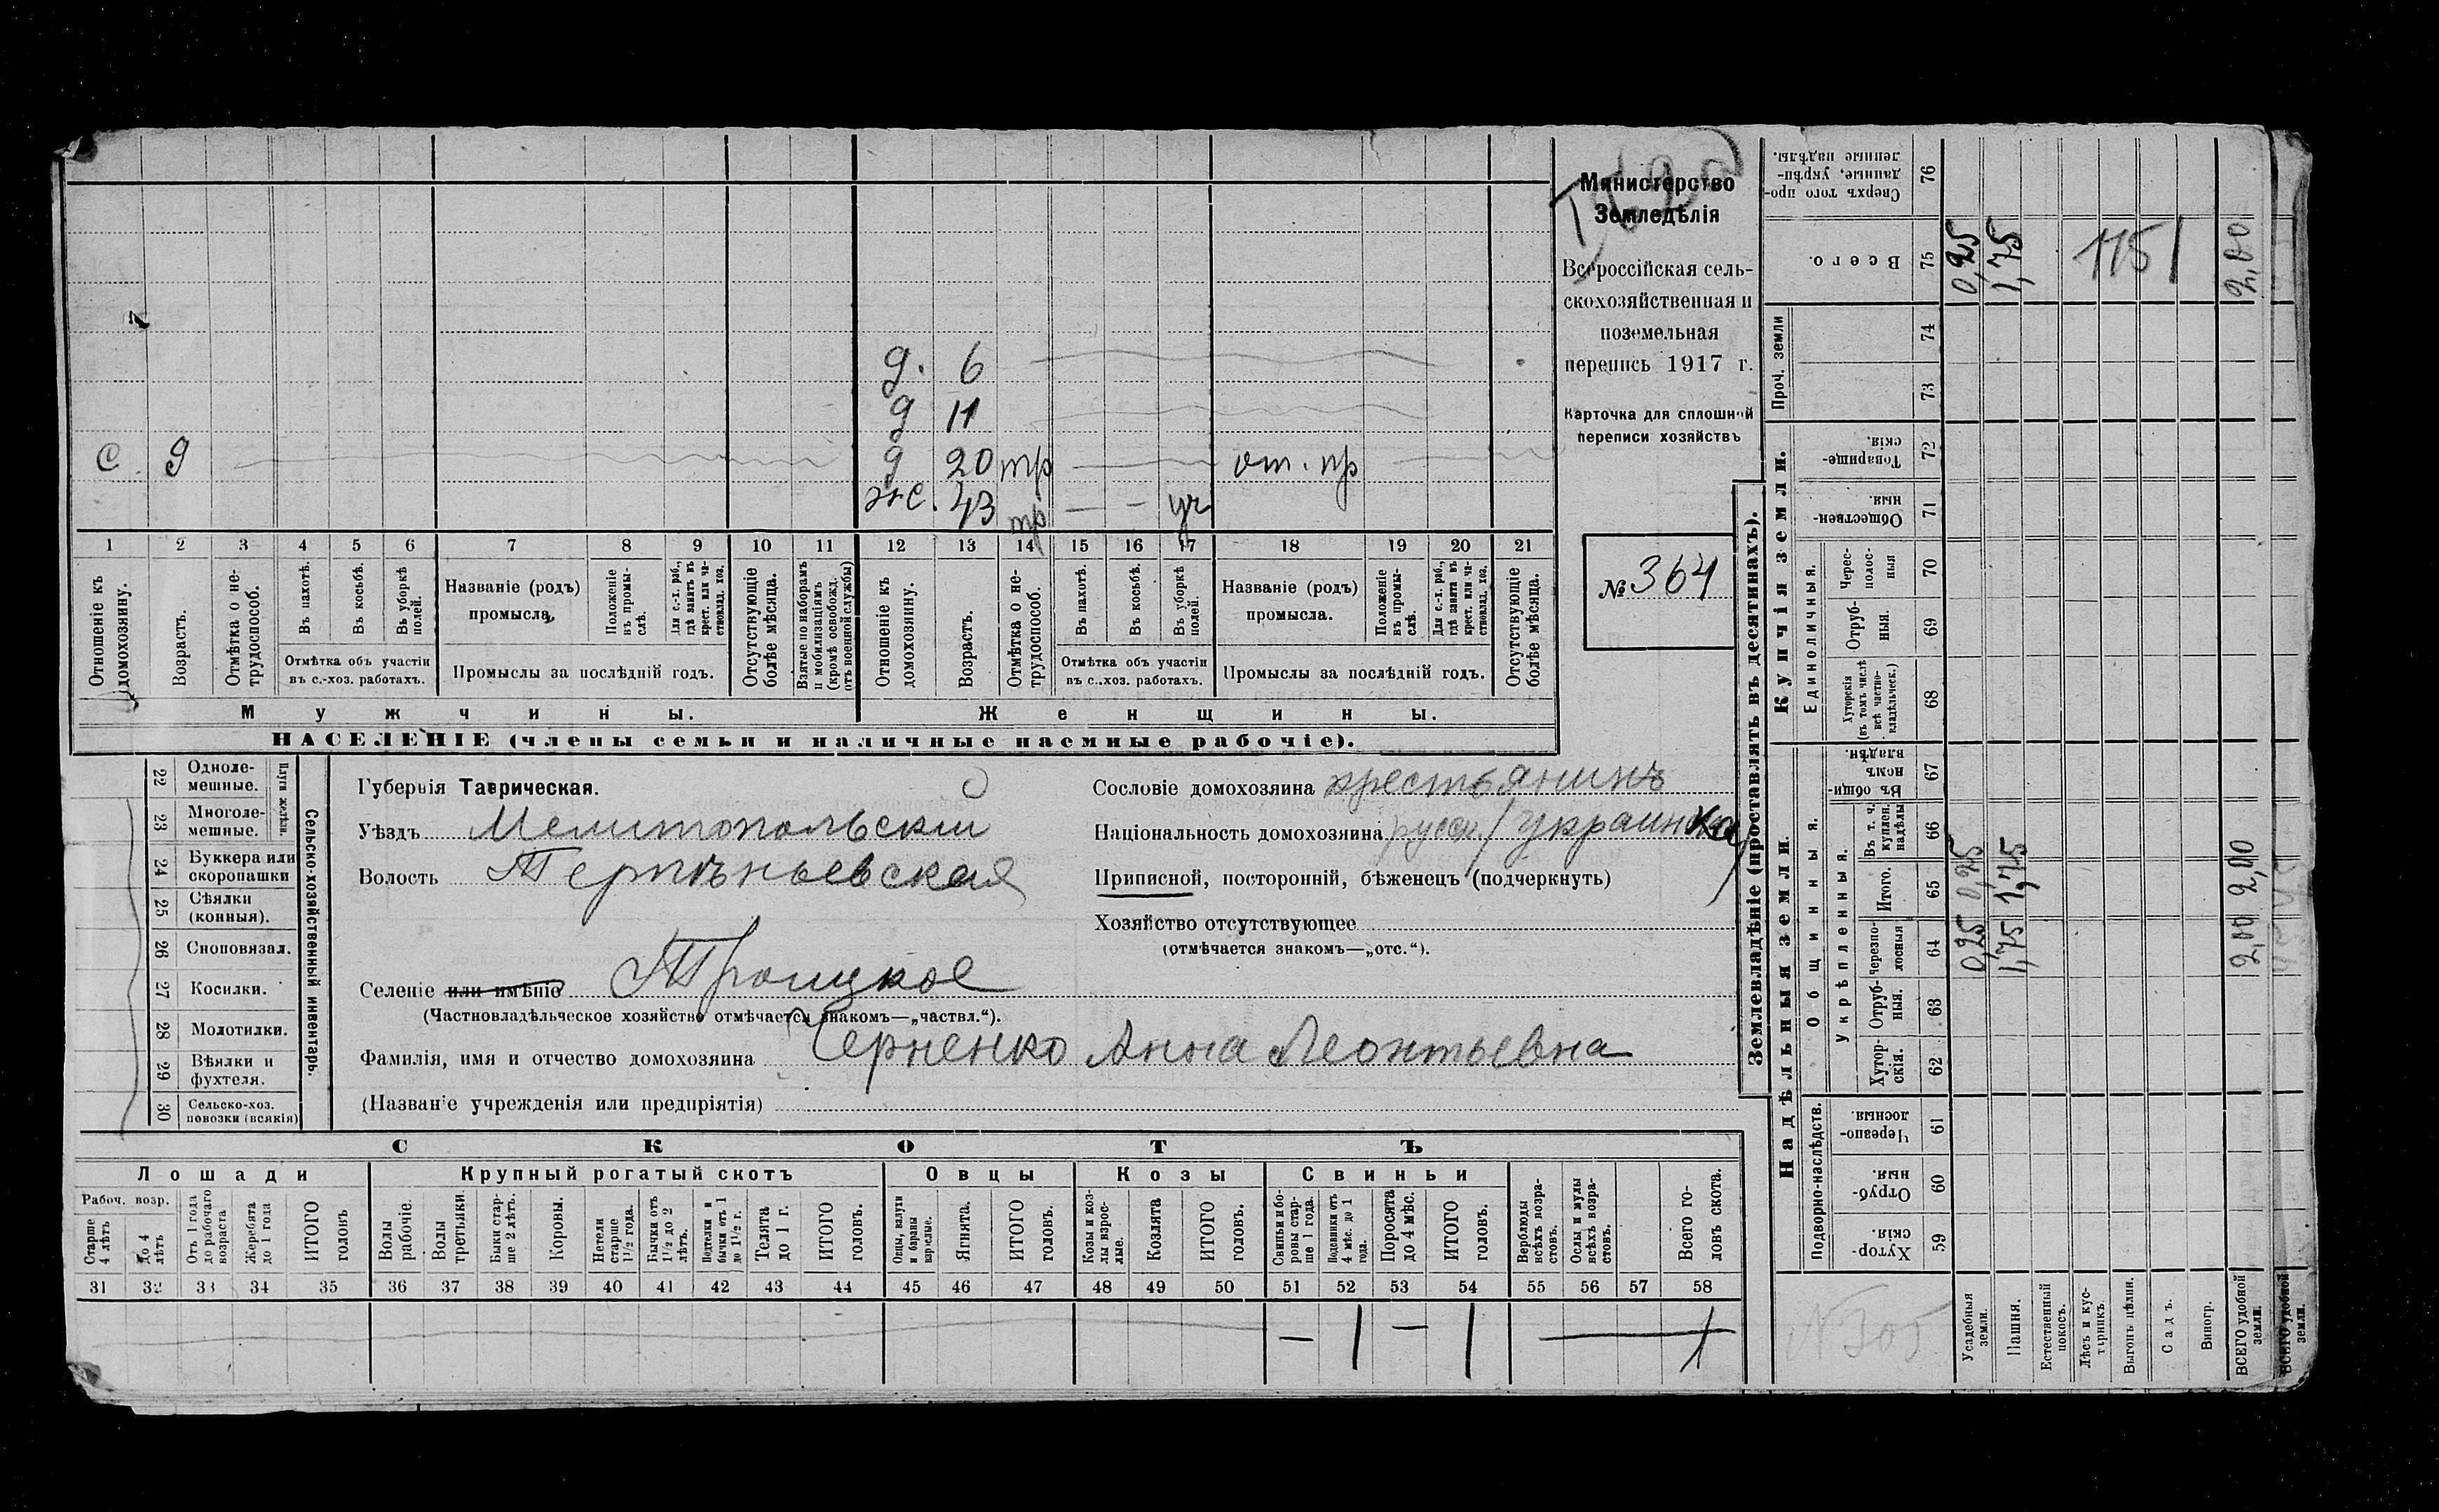 д. 6
д 11
с 9
д 20 тр от. пр
ж. 43 тр — — уч
1 2 3 4 5 6 7 8 9 10 11 12 13 14 15 16 17 18 19 20 21
Отношеніе къ домохозяину.
Возрастъ.
Отмѣтка о не-
трудоспособ.
Въ пахотѣ.
Въ косьбѣ.
Въ уборкѣ полей.
Отмѣтка объ участіи
въ с.-хоз. работахъ.
Названіе (родъ)
промысла,
Положеніе въ промы-
слѣ.
Для с.-х. раб.,
гдѣ занятъ въ
крест. или ча-
стновлад. хоз.
Промыслы за послѣдній годъ.
Отсутствующіе
болѣе мѣсяца.
Взятые по наборамъ
и мобилизаціямъ
(кромѣ освобожд.
отъ военной службы)
Отношеніе къ
домохозяину.
Возрастъ.
Отмѣтка о не-
трудоспособ.
Въ пахотѣ.
Въ косьбѣ.
Въ уборкѣ
полей.
Отмѣтка объ участіи
въ с..хоз. работахъ.
Названіе (родъ)
промысла.
Положеніе
въ промы-
слѣ.
Для с.-х. раб.,
гдѣ занята въ
крест. или ча-
стновлад. хоз.
Промыслы за послѣдній годъ.
Отсутствующіе
болѣе мѣсяца.
Мужчины.
Женщины.
НАСЕЛЕНІЕ (члены семьи и наличные наемные рабочіе).
Министерство
Земледѣлія
Всероссійская сель-
скохозяйственная и
поземельная
перепись 1917 г.
Карточка для сплошной
переписи хозяйствъ
№ 364
22 Одноле-
мешные.
23 Многоле-
мешные.
Плуги желѣзн.
24 Буккера или
скоропашки
25 Сѣялки
(конныя).
26 Сноповязал.
27 Косилки.
28 Молотилки.
29 Вѣялки и
фухтеля.
30 Сельско-хоз.
повозки (всякія)
Сельско-хозяйственный инвентарь.
Губернія Таврическая.
Уѣздъ Мелитопольскій
Волость Терпѣньевская
Селеніе или имѣніе Троицкое
(Частновладѣльческое хозяйство отмѣчается знакомъ—„частвл.“).
Фамилія, имя и отчество домохозяина Черненко Анна Леонтьевна
(Названіе учрежденія или предпріятія)
Сословіе домохозяина крестьянинъ
Національность домохозяина русск. / украинка
Приписной, посторонній, бѣженецъ (подчеркнуть)
Хозяйство отсутствующее
(отмѣчается знакомъ—„отс.“).
СКОТЪ
Лошади
Крупный рогатый скотъ
Овцы
Козы
Свиньи
Рабоч. возр.
Старше
4 лѣтъ
До 4
лѣтъ
Отъ 1 года
до рабочаго
возраста
Жеребята
до 1 года
ИТОГО
головъ
Волы
рабочіе.
Волы
третьяки.
Быки стар-
ше 2 лѣтъ.
Коровы.
Нетели
старше
1½ года.
Бычки отъ
1½ до 2
лѣтъ.
Подтелки и
бычки отъ 1
до 1½ г.
Телята
до 1 г.
ИТОГО
головъ.
Овцы, валухи
и бараны
взрослые.
Ягнята.
ИТОГО
головъ.
Козы и коз-
лы взрос-
лые.
Козлята
ИТОГО
головъ.
Свиньи и бо-
ровы стар-
ше 1 года.
Подсвинки отъ
4 мѣс. до 1
года.
Поросята
до 4 мѣс.
ИТОГО
головъ.
Верблюды
всѣхъ возра-
стовъ.
Ослы и мулы
всѣхъ возра-
стовъ.
Всего го-
ловъ скота.
31 32 33 34 35 36 37 38 39 40 41 42 43 44 45 46 47 48 49 50 51 52 53 54 55 56 57 58
— 1 — 1 — 1
Землевладѣніе (проставлять въ десятинахъ).
Надѣльныя земли.
Купчія земли.
Проч. земли
Подворно-наслѣдств.
Общинныя.
Укрѣпленныя.
Единоличныя.
Хутор-
скія.
Отруб-
ныя.
Черезпо-
лосныя.
Хутор-
скія.
Отруб-
ныя.
Черезпо-
лосныя
Итого.
Въ т. ч.
куплен.
надѣлы
Въ общи-
номъ
владѣн.
Хуторскія
(въ томъ числѣ
всѣ частно-
владѣльческ.)
Отруб-
ныя.
Черес-
полос-
ныя
Обществен-
ныя.
Товарище-
скія.
Всего.
Сверхъ того про-
данные, укрѣп-
ленные надѣлы.
59 60 61 62 63 64 65 66 67 68 69 70 71 72 73 74 75 76
Усадебныя
земли. 0,25 0,25 0,25
Пашня. 1,75 1,75 1,75
Естественный
покосъ.
Лѣсъ и кус-
тарникъ.
Выгонъ цѣлин.
Садъ.
Виногр.
ВСЕГО удобной
земли. 2,00 2,00 2,00
ВСЕГО удобной
земли.
1151
№305